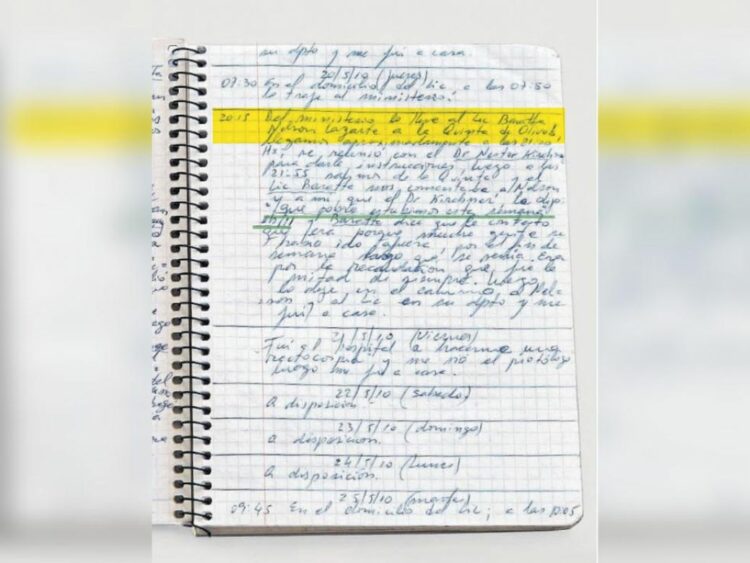 su dpto y me fui a casa.
20/5/10 (jueves)
07:30 En el domicilio del Lic. a las 07:50
lo traje al ministerio.
20:15 Del ministerio lo lleve al Lic Baratta
Nelson Lazarte a la Quinta de Olivos
llegamos aproximadamente a las 21:20
Hs, se reunió con el Dr Nestor Kirchner
para darle instrucciones, luego a las
21:55 salimos de la Quinta y el
Lic Baratta nos comentaba a Nelson
y a mi, que el Dr Kirchner, le dijo:
¡que pobre estubimos esta semana!
y Baratta dice que le contestó
que era porque mucha gente se
había ido afuera por el fin de
semana largo que se venia. Era
por la recaudación que fue la
mitad de siempre. Luego
lo deje en el camino al Nel-
son y al Lic en su dpto y me
fui a casa.
21/5/10 (Viernes)
Fui al hospital a hacerme una
y me vió el proctólogo
luego me fui a casa.
22/5/10 (sabado)
A disposición.
23/5/10 (domingo)
a disposición.
24/5/10 (lunes)
A disposición.
25/5/10 (martes)
09:45 En el domicilio del Lic; a las 10:05